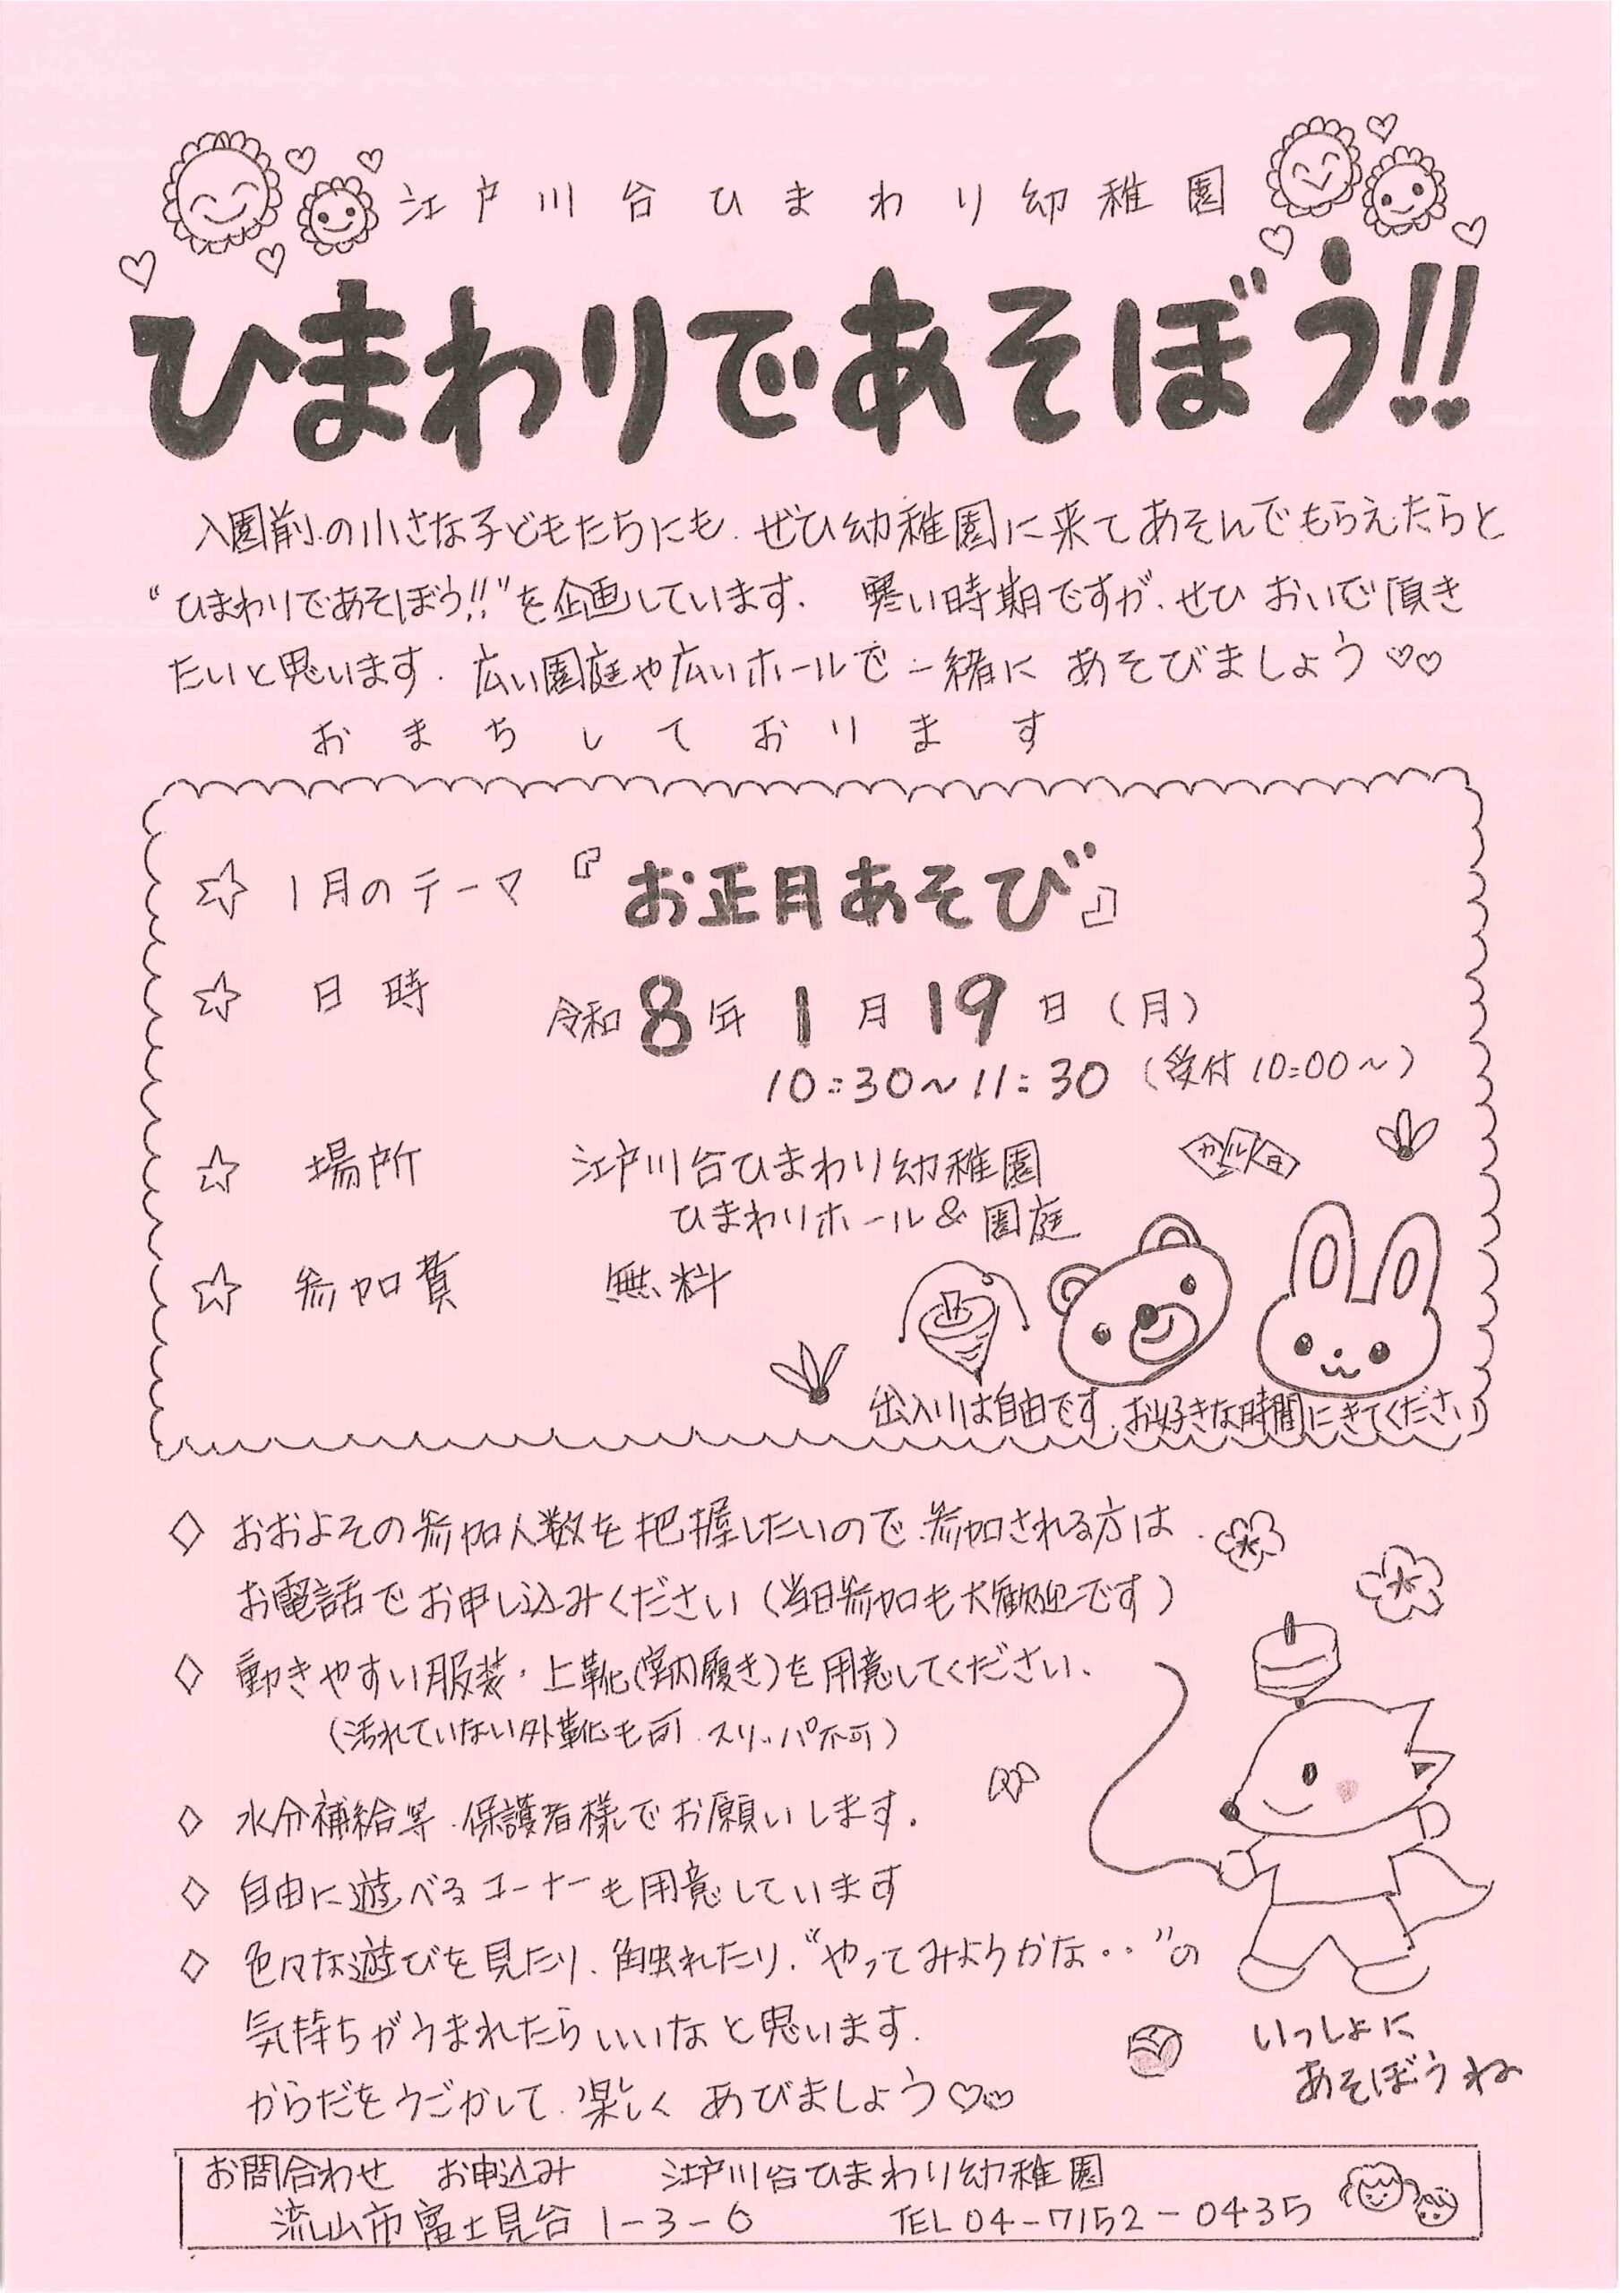 江戸川台ひまわり幼稚園
ひまわりであそぼう!!
入園前の小さな子どもたちにも、ぜひ幼稚園に来てあそんでもらえたらと
“ひまわりであそぼう!!”を企画しています。 寒い時期ですが、ぜひ おいで頂き
たいと思います。広い園庭や広いホールで一緒に あそびましょう♡♡
おまちしております
☆ 1月のテーマ 『お正月あそび』
☆ 日時 令和8年1月19日(月)
10:30〜11:30 (受付10:00〜)
カルタ
☆ 場所 江戸川台ひまわり幼稚園
ひまわりホール&園庭
☆ 参加費 無料
出入りは自由です。お好きな時間にきてください
◇ おおよその参加人数を把握したいので、参加される方は、
お電話でお申し込みください(当日参加も大歓迎です)
◇ 動きやすい服装・上靴(室内履き)を用意してください、
(汚れていない外靴も可、スリッパ不可)
◇ 水分補給等、保護者様でお願いします。
◇ 自由に遊べるコーナーも用意しています
◇ 色々な遊びを見たり、触れたり、“やってみようかな・・”の
気持ちがうまれたらいいなと思います。
からだをうごかして、楽しく あびましょう♡♡
いっしょに
あそぼうね
お問合わせ お申込み 江戸川台ひまわり幼稚園
流山市富士見台1-3-6 TEL 04-7152-0435